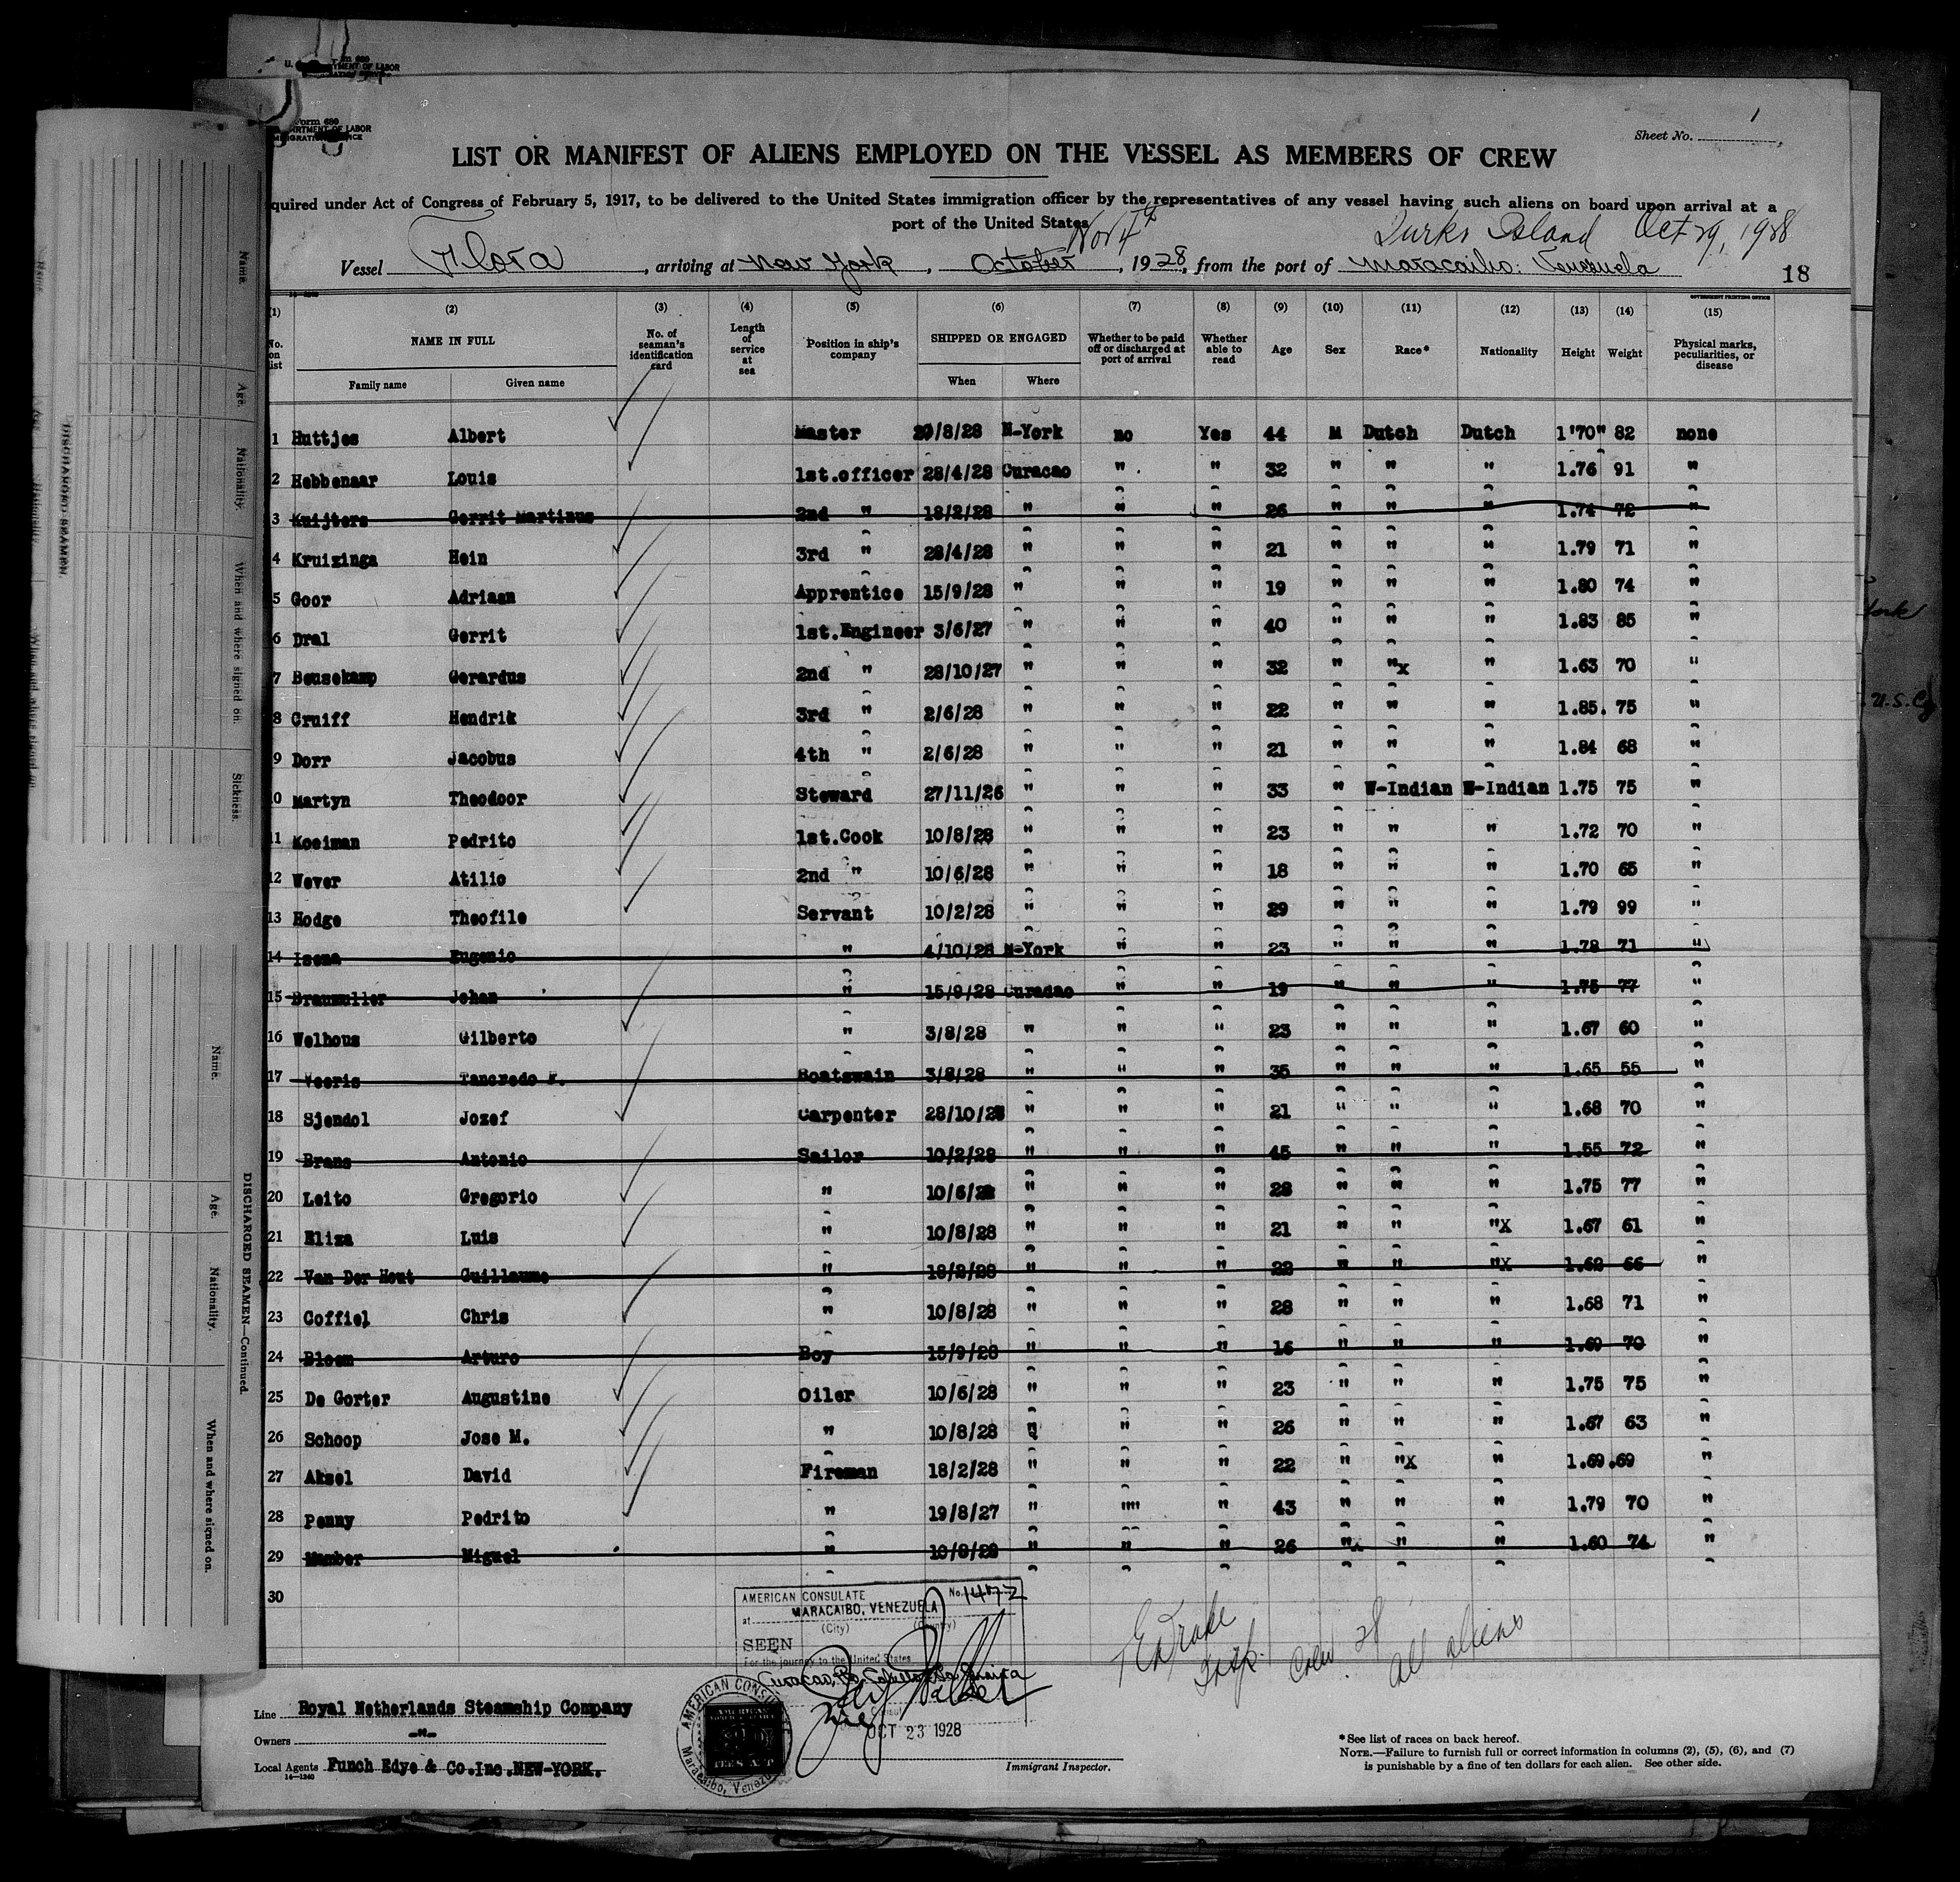 Form 680
Sheet No. 1
LIST OR MANIFEST OF ALIENS EMPLOYED ON THE VESSEL AS MEMBERS OF CREW
quired under Act of Congress of February 5, 1917, to be delivered to the United States immigration officer by the representatives of any vessel having such aliens on board upon arrival at a
port of the United States
Nov 4th Turks Island Oct 29, 1928
Vessel Flora, arriving at New York, October, 1928, from the port of Maracaibo: Venezuela 18
GOVERNMENT PRINTING OFFICE
(1) (2) (3) (4) (5) (6) (7) (8) (9) (10) (11) (12) (13) (14) (15)
No. on list NAME IN FULL No. of seaman's identification card Length of service at sea Position in ship's company SHIPPED OR ENGAGED Whether to be paid off or discharged at port of arrival Whether able to read Age Sex Race* Nationality Height Weight Physical marks, peculiarities, or disease
Family name Given name When Where
1 Huttjes Albert Master 20/8/28 N-York no Yes 44 M Dutch Dutch 1'70" 82 none
2 Hebbenaar Louis 1st.officer 28/4/28 Curacao " " 32 " " " 1.76 91 "
3 Kuijters Gerrit Martinus 2nd " 18/2/28 " " " 26 " " " 1.74 72 "
4 Kruizinga Hein 3rd " 28/4/28 " " " 21 " " " 1.79 71 "
5 Goor Adriaan Apprentice 15/9/28 " " " 19 " " " 1.80 74 "
6 Dral Gerrit 1st.Engineer 3/6/27 " " " 40 " " " 1.83 85 "
7 Beusekamp Gerardus 2nd " 28/10/27 " " " 32 " "x " 1.63 70 "
8 Cruiff Hendrik 3rd " 2/6/28 " " " 22 " " " 1.85. 75 "
9 Dorr Jacobus 4th " 2/6/28 " " " 21 " " " 1.84 68 "
10 Martyn Theodoor Steward 27/11/26 " " " 33 " W-Indian W-Indian 1.75 75 "
11 Koeiman Pedrito 1st.Cook 10/8/28 " " " 23 " " " 1.72 70 "
12 Wever Atilio 2nd " 10/6/28 " " " 18 " " " 1.70 65 "
13 Hodge Theofile Servant 10/2/28 " " " 29 " " " 1.79 99 "
14 Isena Eugenio " 4/10/28 N-York " " 23 " " " 1.78 71 "
15 Braumuller Johan " 15/9/28 Curacao " " 19 " " " 1.75 77 "
16 Welhous Gilberto " 3/8/28 " " " 23 " " " 1.67 60 "
17 Veeris Tancredo F. Boatswain 3/8/28 " " " 35 " " " 1.65 55 "
18 Sjendol Jozef Carpenter 28/10/28 " " " 21 " " " 1.68 70 "
19 Brans Antonio Sailor 10/2/28 " " " 45 " " " 1.55 72 "
20 Leito Gregorio " 10/6/28 " " " 28 " " " 1.75 77 "
21 Eliza Luis " 10/8/28 " " " 21 " " "X 1.67 61 "
22 Van Der Hout Guillaume " 18/2/28 " " " 22 " " "X 1.62 66 "
23 Coffiel Chris " 10/8/28 " " " 28 " " " 1.68 71 "
24 Bloem Arturo Boy 15/9/28 " " " 16 " " " 1.69 70 "
25 De Gorter Augustine Oiler 10/6/28 " " " 23 " " " 1.75 75 "
26 Schoop Jose M. " 10/8/28 " " " 26 " " " 1.67 63 "
27 Aksel David Fireman 18/2/28 " " " 22 " "X " 1.69.69 "
28 Penny Pedrito " 19/8/27 " "" " 43 " " " 1.79 70 "
29 Mamber Miguel " 10/8/28 " " " 26 "x " " 1.60 74 "
30
AMERICAN CONSULATE No. 1472
at MARACAIBO, VENEZUELA
(City) (Country)
SEEN
For the journey to the United States
Curacao, Pto Cabello, La Guaira
OCT 23 1928
AMERICAN CONSULATE
Maracaibo, Venezuela
E Drake
Insp. Crew 28 All aliens
Line Royal Netherlands Steamship Company
Owners -"-
Local Agents Funch Edye & Co.Inc.NEW-YORK.
14—1240
Immigrant Inspector.
*See list of races on back hereof.
NOTE.—Failure to furnish full or correct information in columns (2), (5), (6), and (7)
is punishable by a fine of ten dollars for each alien. See other side.
DISCHARGED SEAMEN.
Name. Age. Nationality. When and where signed on. Sickness.
DISCHARGED SEAMEN—Continued.
Name. Age. Nationality. When and where signed on.
York
U.S.Cy